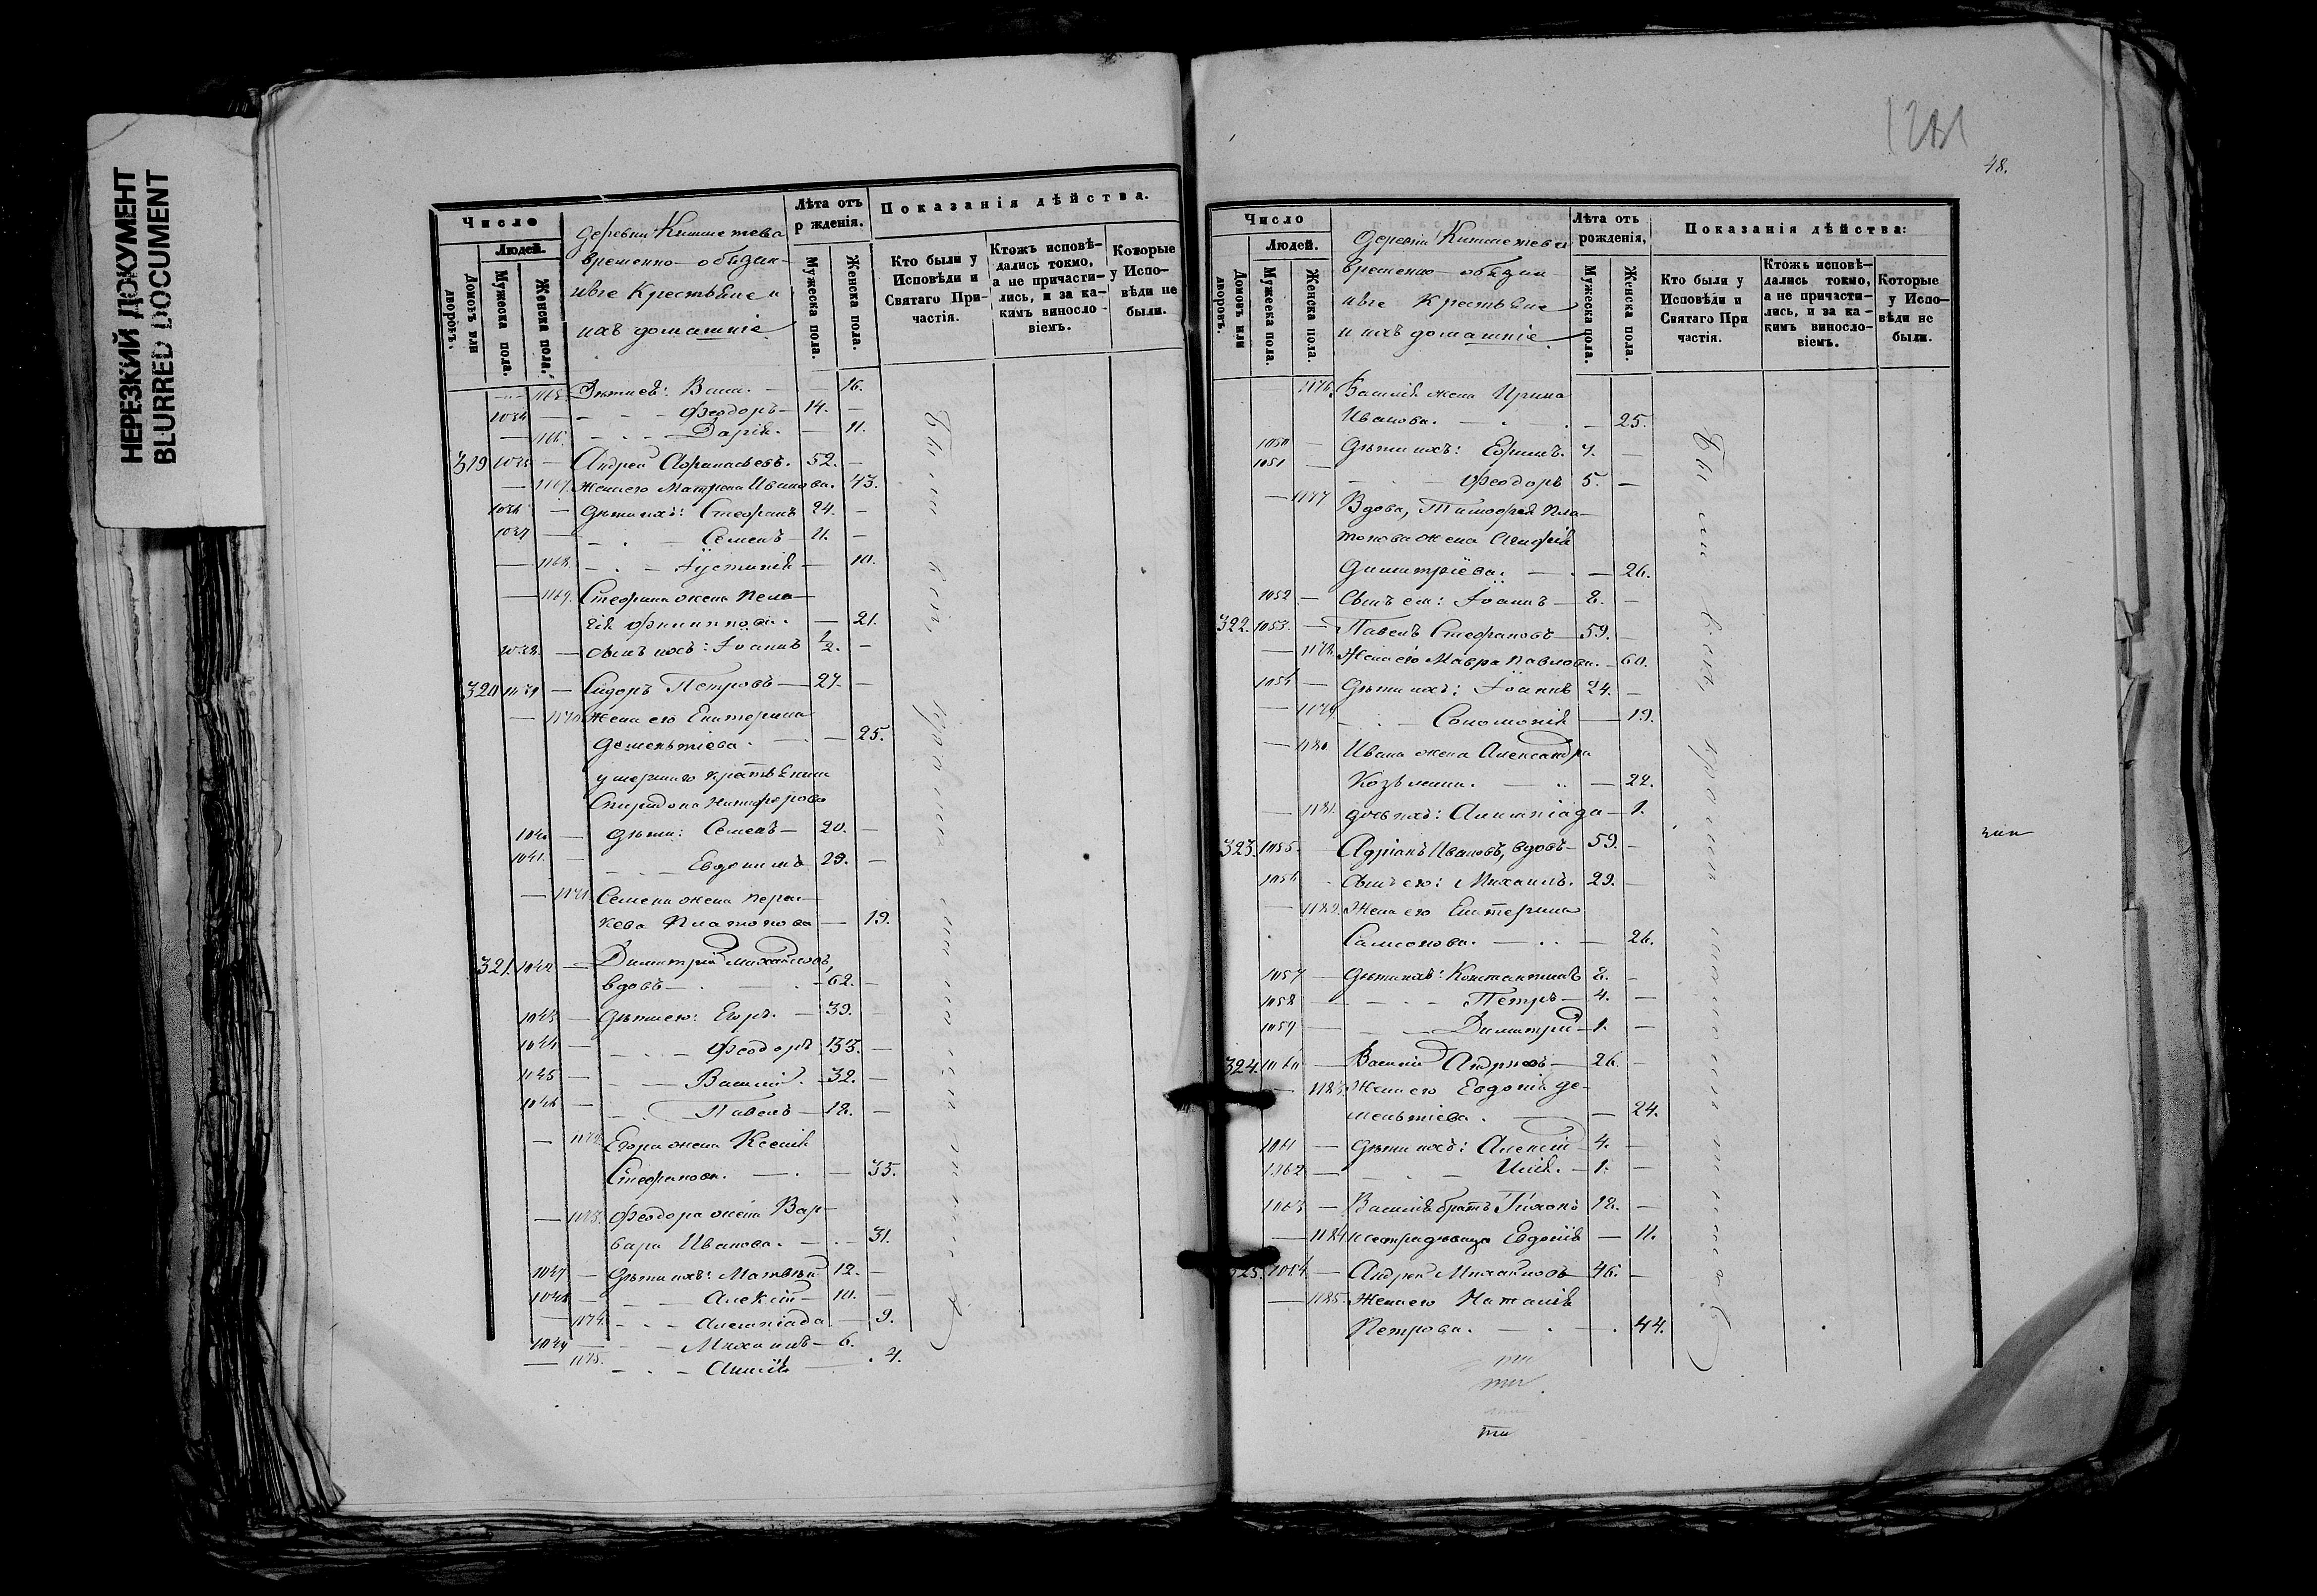 НЕРЕЗКИЙ ДОКУМЕНТ
BLURRED DOCUMENT
Число
Людей.
Домовъ или дворовъ.
Мужеска пола.
Женска пола.
деревни
временно-обязан-
ные Крестьяне и
ихъ домашніе
Лѣта отъ
р жденія.
Мужеска пола.
Женска пола.
Показанія дѣйства.
Кто были у
Исповѣди и
Святаго При-
частія.
Ктожъ исповѣ-
дались токмо,
а не причасти-
лись, и за ка-
кимъ винosло-
віемъ.
Которые
у Испо-
вѣди не
были.
1165. 16.
1034 — Ѳеодоръ — 14. —
— 1166. Дарія. — 11.
319 1035 — Андрей Афанасьевъ. 52. —
— 1167. Жена его Матрона Иванова. 43.
1036 — Дѣти ихъ: Стефанъ 24. —
1037 — Семенъ — 11. —
— 1168. Іустинія — 10.
— 1169. Стефана жена Пела-
гія Филиппова. — 21.
1038. — сынъ ихъ: Іоаннъ 1/2. —
320 1039 — Сидоръ Петровъ — 27. —
— 1170. Жена его Екатерина
Дементіева. — 25.
умершаго крестьянина
Спиридона Никифорова
1040 — дѣти: Семенъ — 20. —
1041. — Евдокимъ 29. —
— 1171. Семена жена Парас-
кева Платонова — 19.
321. 1042 — Димитрій Михайловъ,
вдовъ — 62. —
1043 — Дѣти его: Егоръ. — 39.
1044 — Ѳеодоръ 33. —
1045 — Василій. 32. —
1046 — Павелъ — 18. —
— 1172. Егора жена Ксенія
Стефанова. — 35.
— 1173. Ѳеодора жена Вар-
вара Иванова. — 31.
1047 — Дѣти ихъ: Матвѣй 12. —
1048 — Алексій — 10. —
— 1174. Олимпіада — 9.
1049 — Михаилъ — 6.
— 1175. 4.
Были всѣ, кромѣ
48.
Число
Людей.
Домовъ или дворовъ.
Мужеска пола.
Женска пола.
Деревни
временно-обязан-
ные Крестьяне
и ихъ домашніе
Лѣта отъ
рожденія,
Мужеска пола.
Женска пола.
Показанія дѣйства:
Кто были у
Исповѣди и
Святаго При
частія.
Ктожъ исповѣ-
дались токмо,
а не причасти-
лись, и за ка-
кимъ винosло-
віемъ.
Которые
у Испо-
вѣди не
были.
1176. Василія жена Ирина
Иванова. — 25.
1050 — Дѣти ихъ: 7. —
1051 — Ѳеодоръ 5. —
— 1177 Вдова, Тимофея Пла-
тонова жена
Димитріева. — 26.
1052 — Сынъ ея: Іоаннъ — 8. —
322. 1053. — Павелъ Стефановъ — 59. —
— 1178. Жена его Мавра Павлова. — 60.
1054 — Дѣти ихъ: Іоаннъ 24. —
— 1179 Соломонія — 19.
— 1180 Ивана жена Александра
Козьмина. — 22.
— 1181. дочь ихъ: Олимпіада — 1.
323. 1055 — Адріанъ Ивановъ, вдовъ — 59. —
1056 — Сынъ его: Михаилъ. 29. —
— 1182. Жена его Екатерина
Самсонова. — 26.
1057 — Дѣти ихъ: Константинъ 8. —
1058 — Петръ — 4. —
1059 — Димитрій — 1. —
324. 1060 — Василій Андреевъ — 26. —
— 1183. Жена его Евдокія Де-
ментіева. — 24.
1061 — Дѣти ихъ: Алексій 4. —
1062 — Илія. — 1. —
1063 — Василія братъ Тихонъ 18. —
— 1184 Евдокія — 11.
325. 1064 — Андрей Михайловъ — 46. —
— 1185. Жена его Наталія
Петрова. — 44.
Были всѣ, кромѣ